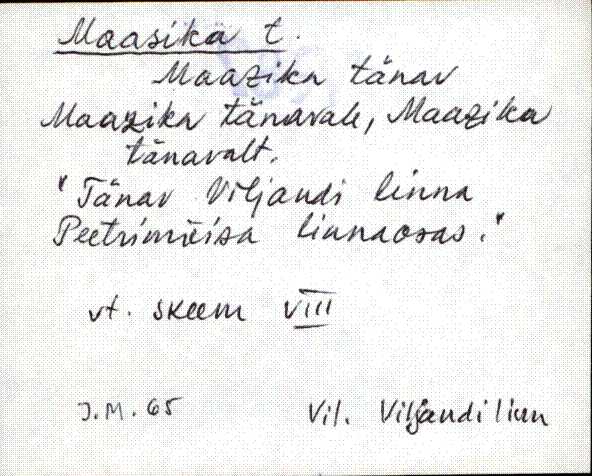 Maasika t.
Maazika tänav
Maazika tänavale, Maazika
tänavalt.
"Tänav Viljandi linna
Peetrimõisa linnaosas."
vt. skeem VIII
J.M. 65
Vil. Viljandi linn